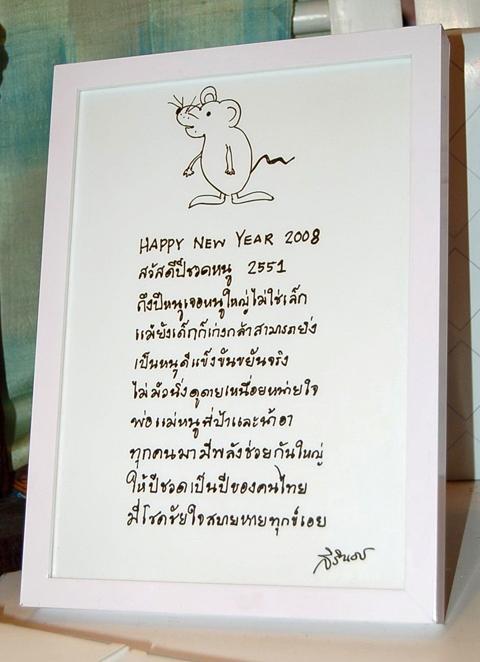 HAPPY NEW YEAR 2008
สวัสดีปีชวดหนู 2551
ถึงปีหนูเจอหนูใหญ่ไม่ใช่เล็ก
แม้ยังเด็กก็เก่งกล้าสามารถยิ่ง
เป็นหนูดีแข็งขันขยันจริง
ไม่มัวนิ่งดูดายเหนื่อยหน่ายใจ
พ่อแม่หนูพี่ป้าและน้าอา
ทุกคนมามีพลังช่วยกันใหญ่
ให้ปีชวดเป็นปีของคนไทย
มีโชคชัยใจสบายหายทุกข์เอย
สิรินธร